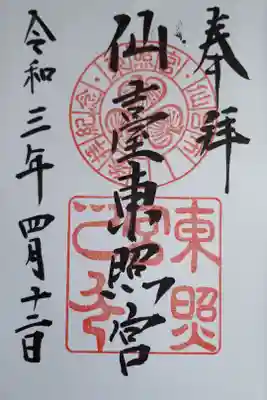 奉拝
仙臺東照宮
東照宮
令和三年四月十二日